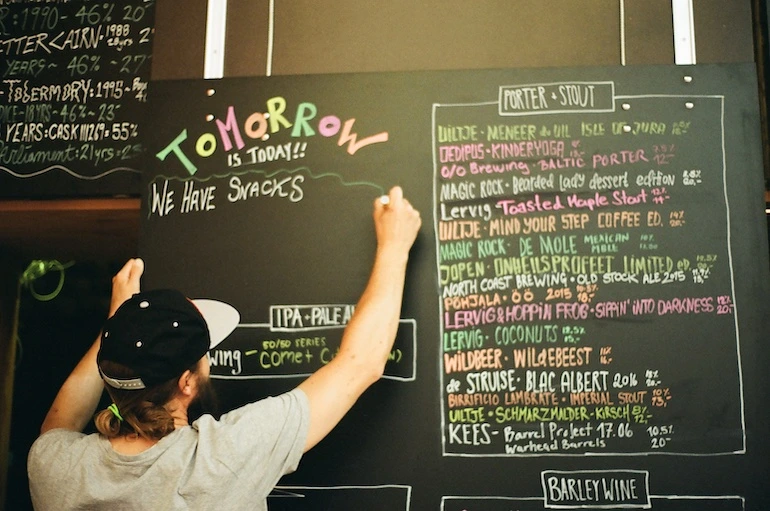 1990-46% 20
ETTERCAIRN·1988
YEARS~ 46% ~27
TOBERMORY:1995~
18YRS~46%~23
YEARS:CASK 111269=55%
Parliament:21yrs=25
TOMORROW
IS TODAY!!
WE HAVE SNACKS
IPA+PALE A
50/50 SERIES
WING - COMET
PORTER + STOUT
UILTJE·MENEER de UIL ISLE OF JURA
OEDIPUS·KINDERYOGA
O/O BREWING·BALTIC PORTER
MAGIC ROCK·Bearded lady dessert edition
Lervig Toasted Maple Stout
UILTJE·MIND YOUR STEP COFFEE ED.
MAGIC ROCK·DE MOLE MEXICAN MOLE
JOPEN·ONHEILSPROFEET LIMITED ED.
NORTH COAST BREWING·OLD STOCK ALE 2015
PÕHJALA·ÖÖ 2015
LERVIG & HOPPIN FROG·SIPPIN' INTO DARKNESS
LERVIG·COCONUTS
WILDBEER·WILDEBEEST
de STRUISE·BLAC ALBERT 2016
BIRRIFICIO LAMBRATE·IMPERIAL STOUT
UILTJE·SCHMARZWALDER·KIRSCH
KEES-Barrel Project 17.06 10,5%
Warhead Barrels 20-
BARLEY WINE